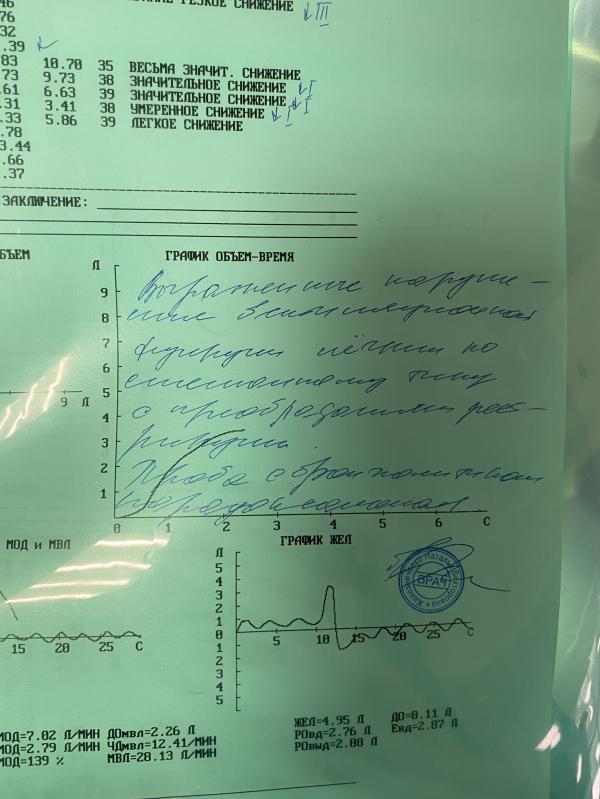 46
76 РЕЗКОЕ СНИЖЕНИЕ ↓III
32
.39
83 10.70 35 ВЕСЬМА ЗНАЧИТ. СНИЖЕНИЕ
73 9.73 38 ЗНАЧИТЕЛЬНОЕ СНИЖЕНИЕ ↓I
.61 6.63 39 ЗНАЧИТЕЛЬНОЕ СНИЖЕНИЕ ↓I
.31 3.41 38 УМЕРЕННОЕ СНИЖЕНИЕ ↓I
.33 5.86 39 ЛЕГКОЕ СНИЖЕНИЕ
.78
3.44
.66
.37
ЗАКЛЮЧЕНИЕ:
ЪЕМ ГРАФИК ОБЪЕМ-ВРЕМЯ
Л
9
8
7
6
5
4
3
2
1
9 Л
Выраженные наруше-
ние вентиляционной
функции лёгких по
смешанному типу
с преобладанием рест-
рикции.
Проба с бронхолитиком
парадоксальная
0 1 2 3 4 5 6 С
МОД и МВЛ
ГРАФИК ЖЕЛ
Л
5
4
3
2
1
0
1
2
3
4
5
5 10 15 20 25 С
15 20 25 С
ВРАЧ
МОД=7.02 Л/МИН ДОмвл=2.26 Л
МОД=2.79 Л/МИН ЧДмвл=12.41/МИН
МОД=139 % МВЛ=28.13 Л/МИН
ЖЕЛ=4.95 Л ДО=0.11 Л
РОвд=2.76 Л Евд=2.87 Л
РОвыд=2.08 Л